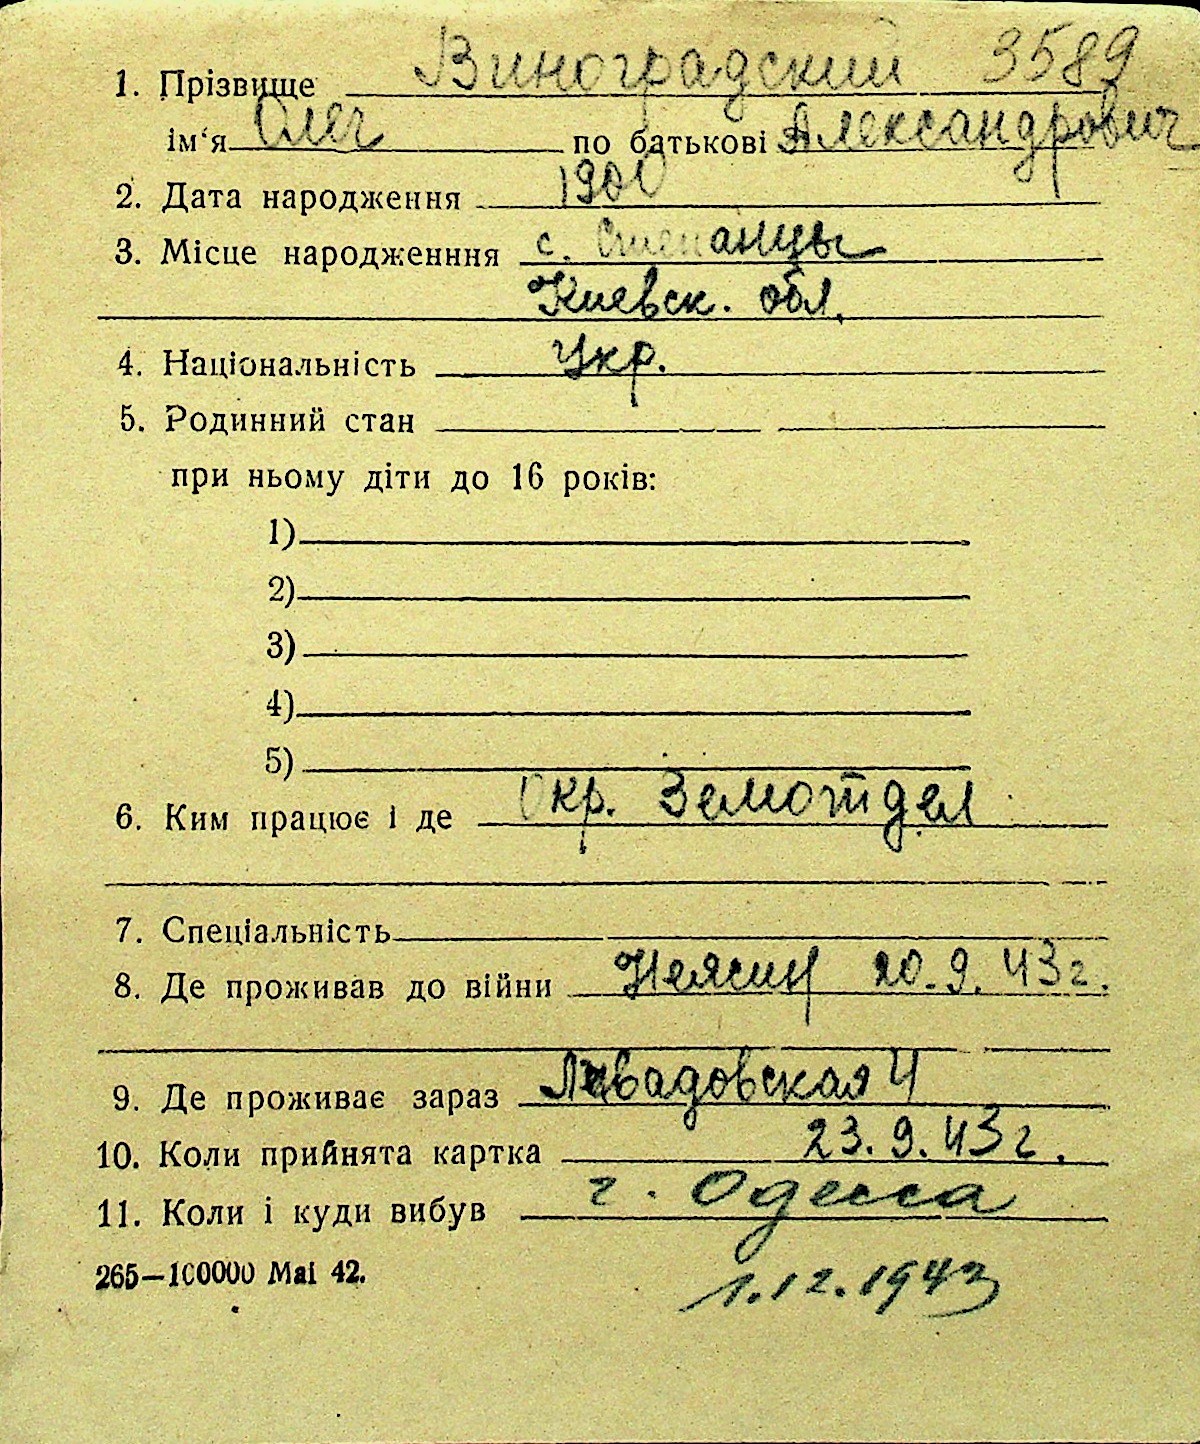 1. Прізвище Виноградский 3589
ім‘я Олег по батькові Александрович
2. Дата народження 1900
3. Місце народженння с. Степанцы
Киевск. обл.
4. Національність Укр.
5. Родинний стан
при ньому діти до 16 років:
1)
2)
3)
4)
5)
6. Ким працює і де Окр. Земотдел
7. Спеціальність
8. Де проживав до війни 20.9.43г.
9. Де проживає зараз Левадовская 4
10. Коли прийнята картка 23.9.43г.
11. Коли і куди вибув г. Одесса
265—100000 Mai 42. 1.12.1943